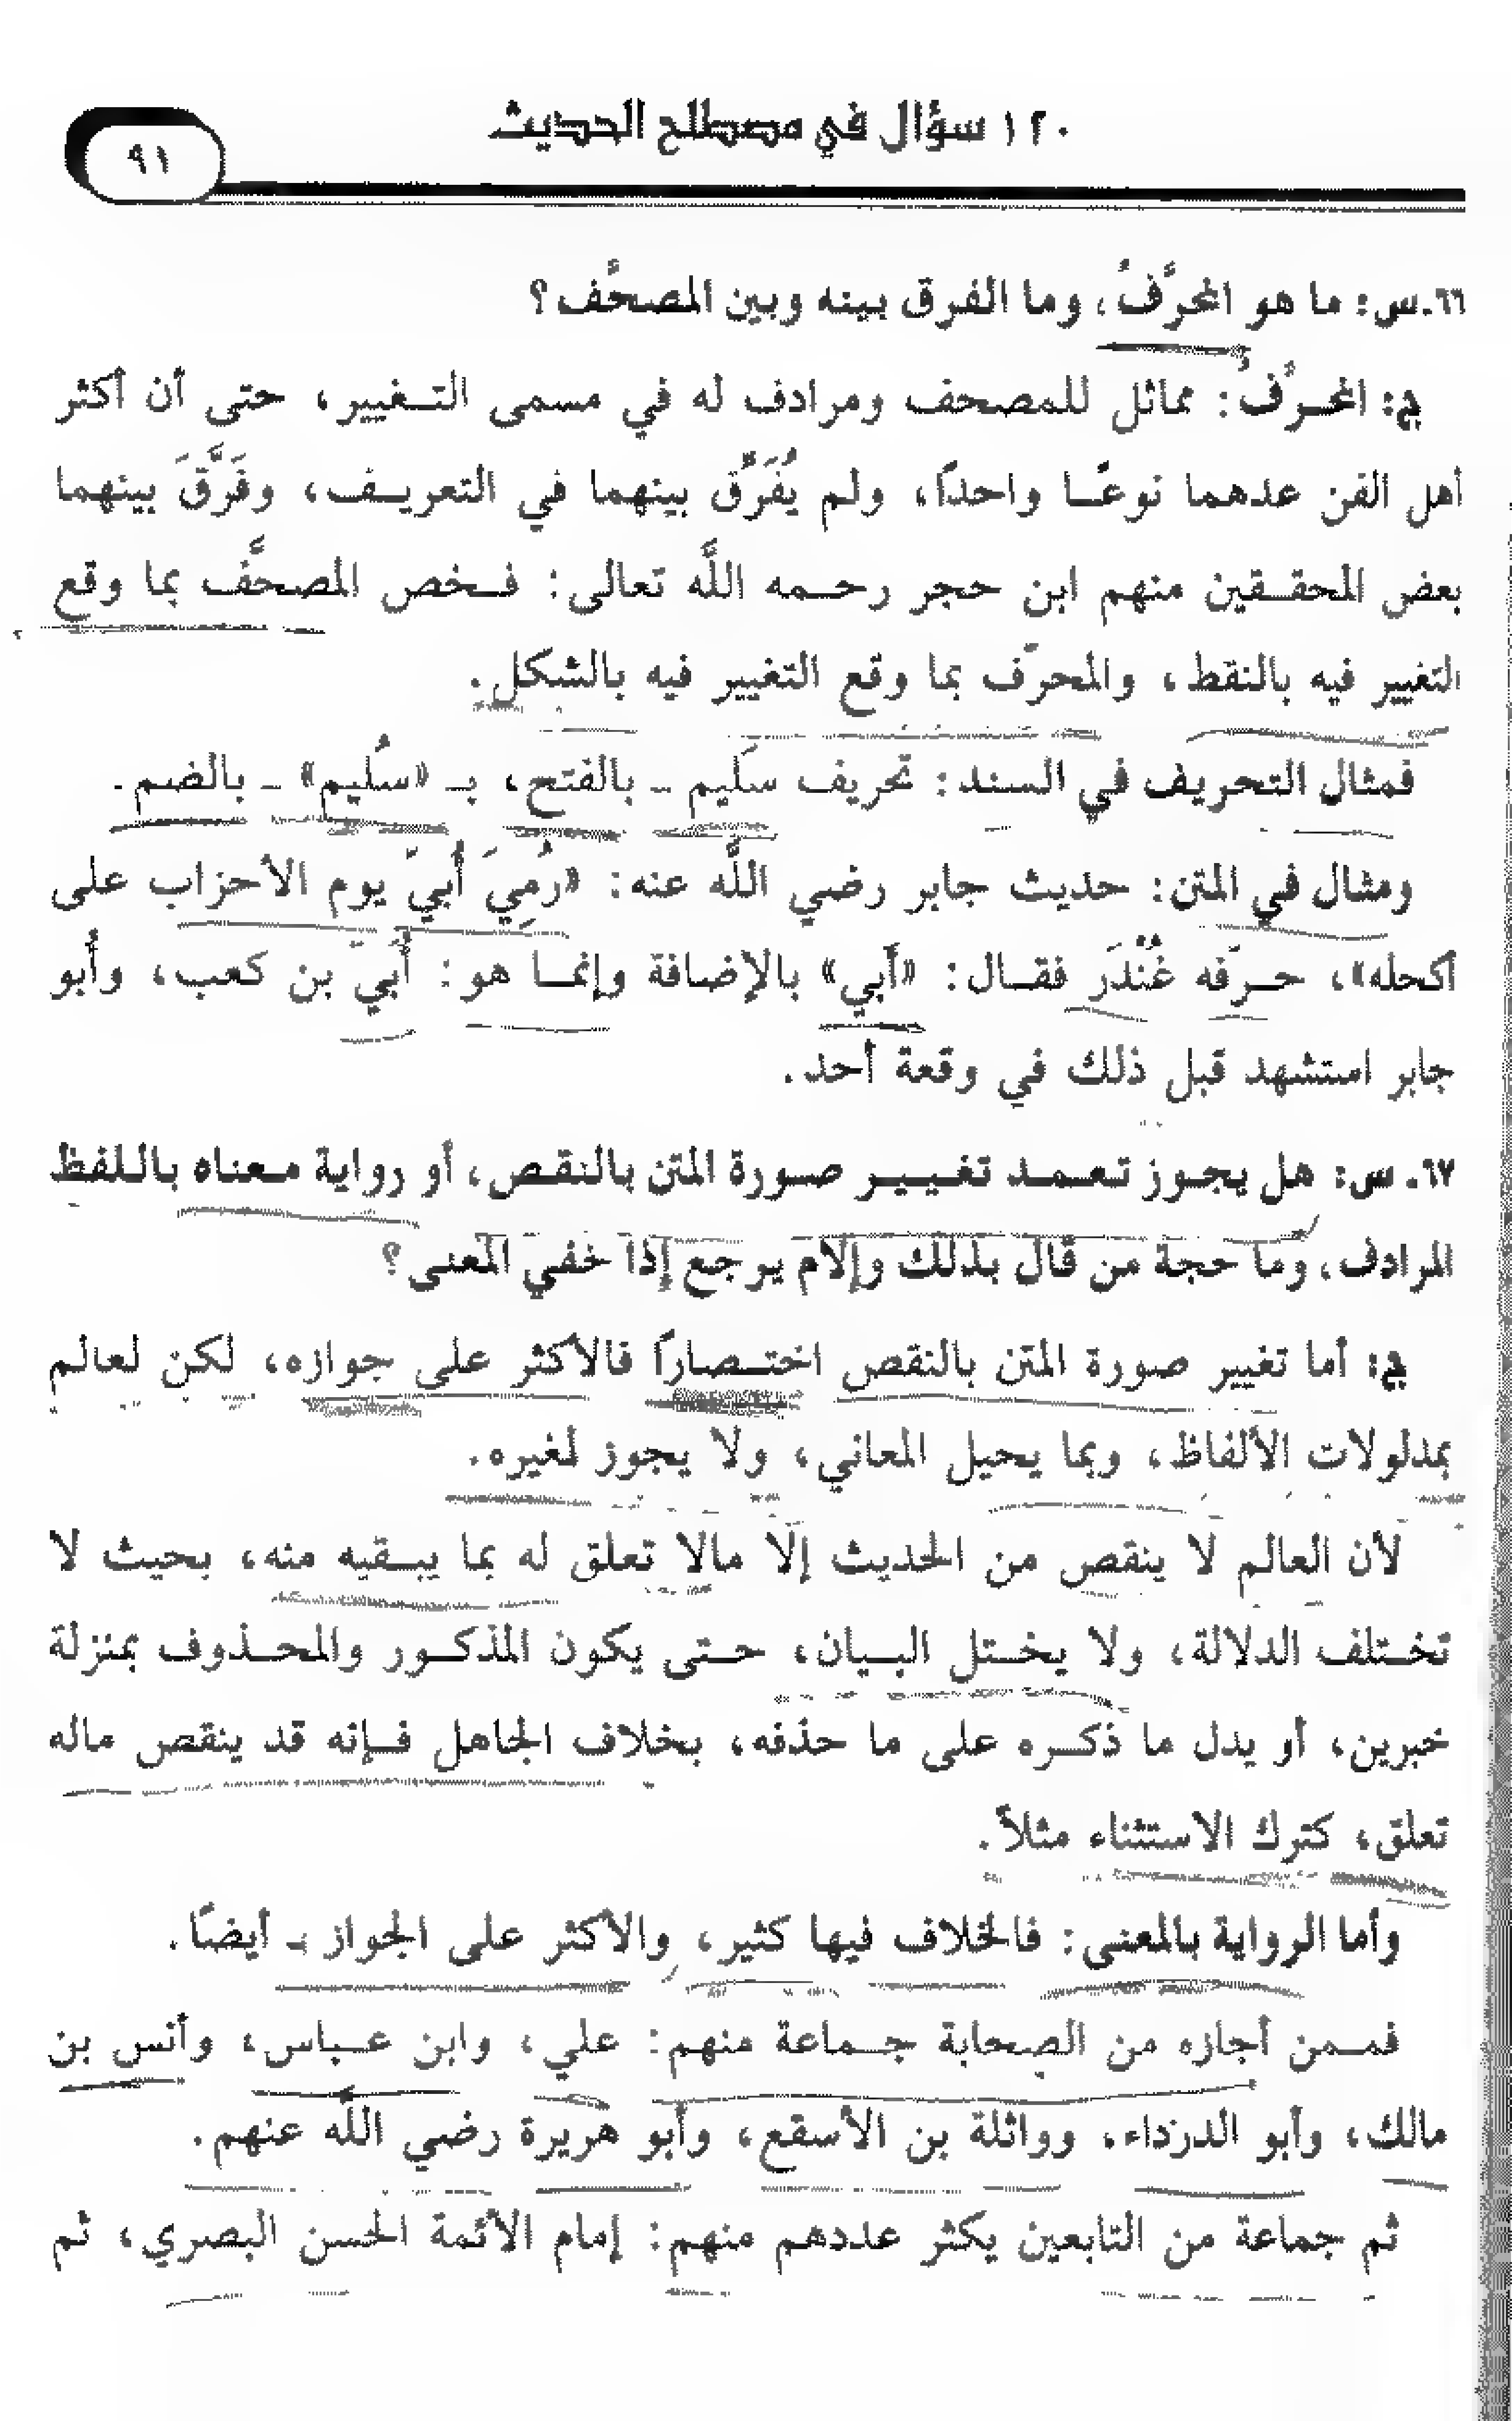 ١٢٠ سؤال في مصطلح الحديث
٩١
٦٦ـ س: ما هو المحرَّفُ، وما الفرق بينه وبين المصحَّف؟
ج: المحـرَّفُ: مماثل للمصحف ومرادف له في مسمى التـغيير، حتى أن أكثر
أهل الفن عدهما نوعًـا واحدًا، ولم يُفَرِّق بينهما في التعريـف، وفَرَّقَ بينهما
بعض المحققـين منهم ابن حجر رحـمه اللَّه تعالى: فـخص المصحَّف بما وقع
التغيير فيه بالنقط، والمحرّف بما وقع التغيير فيه بالشكل.
فمثال التحريف في السند: تحريف سَليم ـ بالفتح، بـ «سُليم» ـ بالضم.
ومثال في المتن: حديث جابر رضي اللَّه عنه: «رُمِيَ أُبيّ يوم الأحزاب على
أكحله»، حـرّفه غُنْدَر فقـال: «أَبي» بالإضافة وإنمـا هو: أُبَيّ بن كعب، وأبو
جابر استشهد قبل ذلك في وقعة أحد.
٦٧ـ س: هل يجـوز تـعـمـد تغـيـيـر صـورة المتن بالنقـص، أو رواية مـعناه باللفظ
المرادف، وما حجة من قال بذلك وإلام يرجع إذا خفي المعنى؟
ج: أما تغيير صورة المتن بالنقص اختـصارًا فالأكثر على جوازه، لكن لعالم
بمدلولات الألفاظ، وبما يحيل المعاني، ولا يجوز لغيره.
لأن العالم لا ينقص من الحديث إلَّا مالا تعلق له بما يبـقيه منه، بحيث لا
تخـتلف الدلالة، ولا يخـتل البـيان، حـتى يكون المذكـور والمحـذوف بمنزلة
خبرين، أو يدل ما ذكـره على ما حذفه، بخلاف الجاهل فـإنه قد ينقص ماله
تعلق، كترك الاستثناء مثلاً.
وأما الرواية بالمعنى: فالخلاف فيها كثير، والأكثر على الجواز ـ أيضًا.
فمـمن أجازه من الصحابة جـماعة منهم: علي، وابن عـباس، وأنس بن
مالك، وأبو الدرداء، وواثلة بن الأسقع، وأبو هريرة رضي اللَّه عنهم.
ثم جماعة من التابعين يكثر عددهم منهم: إمام الأئمة الحسن البصري، ثم